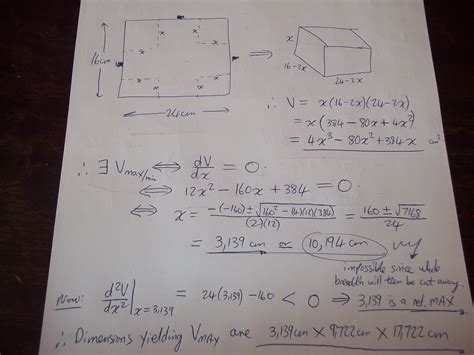 x x
x x
16cm
24cm
⇒
x
16-2x
24-2x
∴ V = x(16-2x)(24-2x)
= x(384 - 80x + 4x²)
= 4x³ - 80x² + 384x cm³
∴ ∃ Vmax/min ⇔ dV/dx = 0
⇔ 12x² - 160x + 384 = 0
⇔ x = -(-160) ± √(160² - (4)(12)(384)) / (2)(12) = 160 ± √7168 / 24
= 3,139 cm or 10,194 cm
impossible since whole
breadth will then be cut away.
Now: d²V/dx² |x=3,139 = 24(3,139) - 160 < 0 ⇒ 3,139 is a rel. MAX
∴ Dimensions yielding VMAX are 3,139cm × 9,722cm × 17,722cm